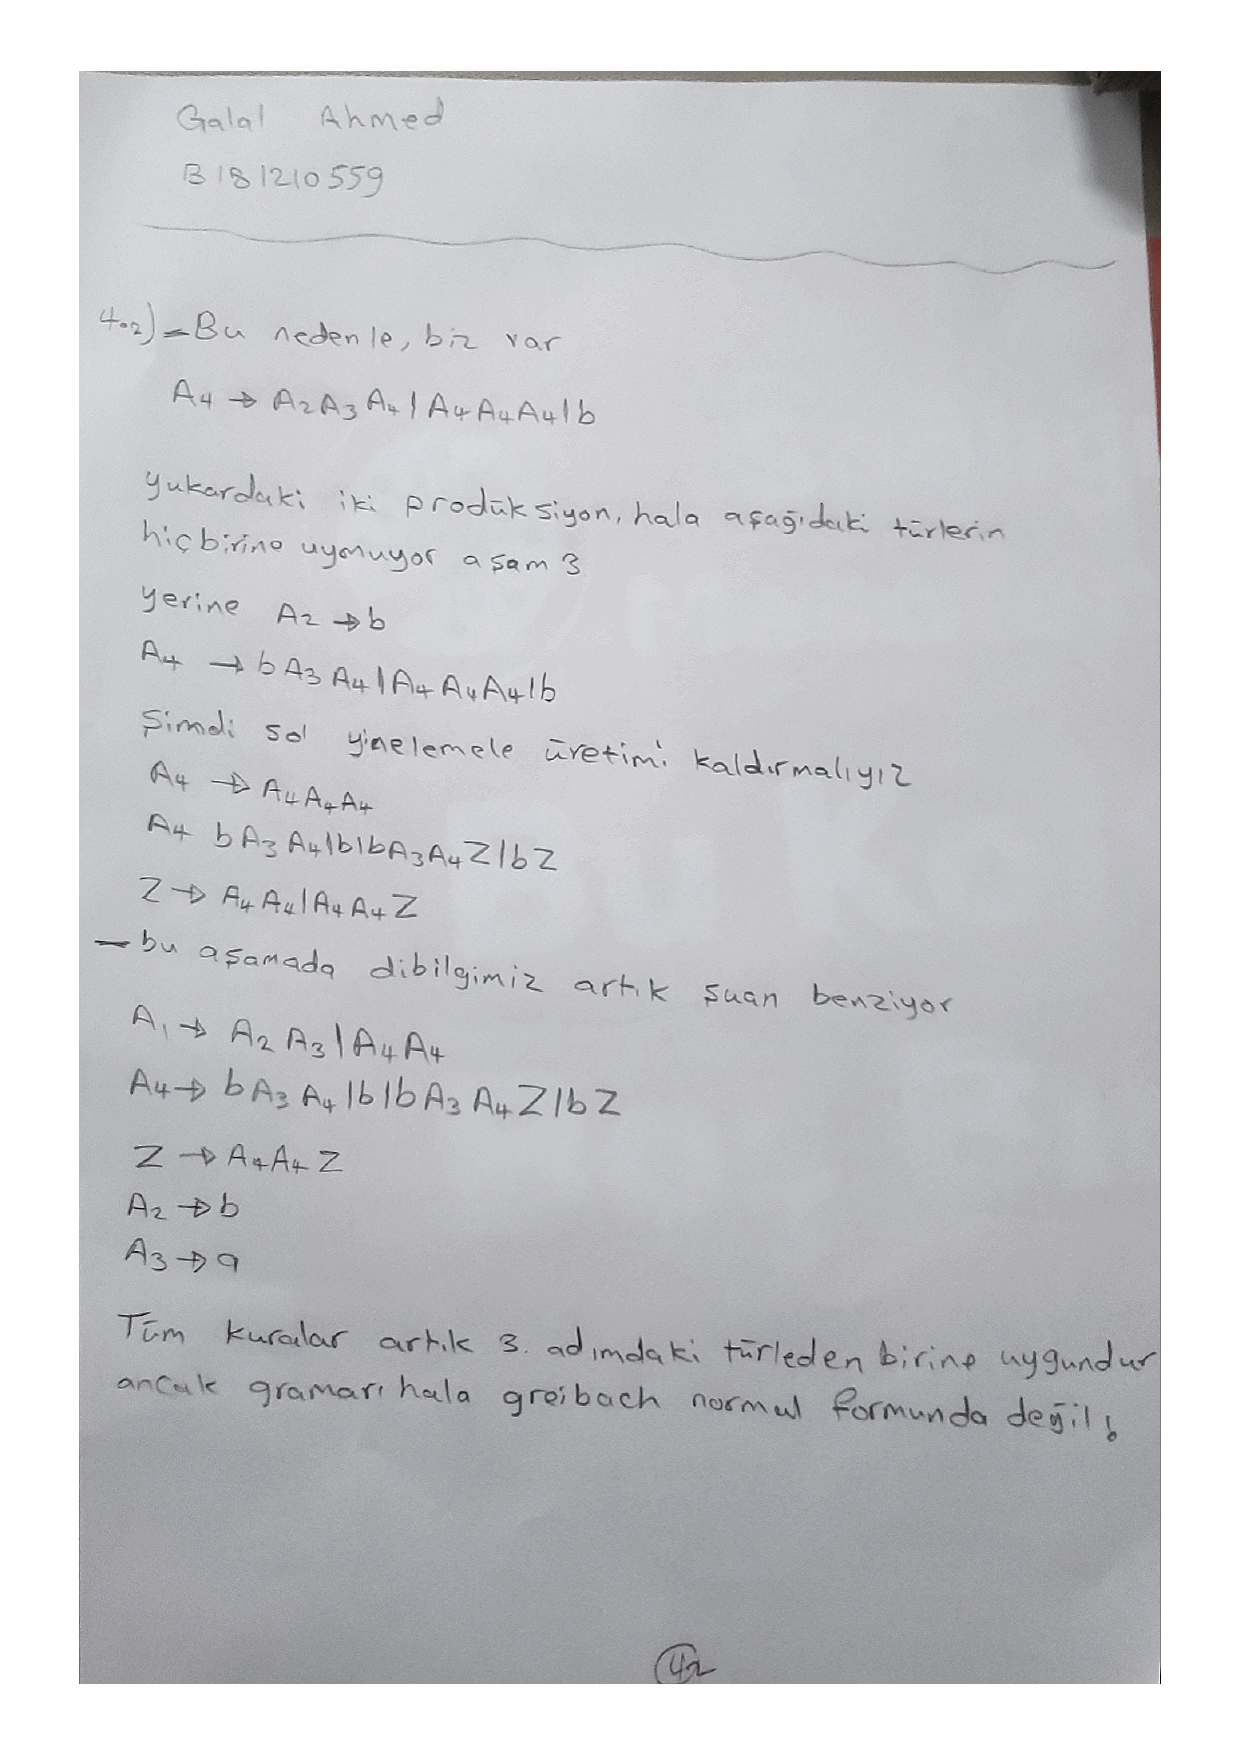 Galal Ahmed
B181210559
4.2) - Bu nedenle, biz var
A4 → A2 A3 A4 | A4 A4 A4 | b
yukardaki iki prodüksiyon, hala aşağıdaki türlerin
hiçbirine uymuyor aşam 3
yerine A2 → b
A4 → b A3 A4 | A4 A4 A4 | b
Şimdi sol yinelemele üretimi kaldırmalıyız
A4 → A4 A4 A4
A4 b A3 A4 | b | b A3 A4 Z | b Z
Z → A4 A4 | A4 A4 Z
- bu aşamada dibilgimiz artık şuan benziyor
A1 → A2 A3 | A4 A4
A4 → b A3 A4 | b | b A3 A4 Z | b Z
Z → A4 A4 Z
A2 → b
A3 → a
Tüm kuralar artık 3. adımdaki türleden birine uygundur
ancak gramarı hala greibach normal formunda değil
42